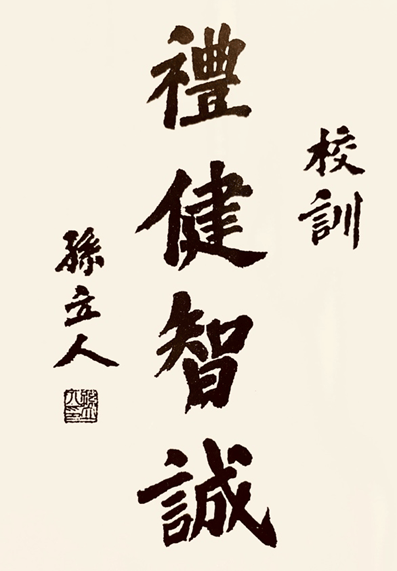 校訓
禮健智誠
孫立人